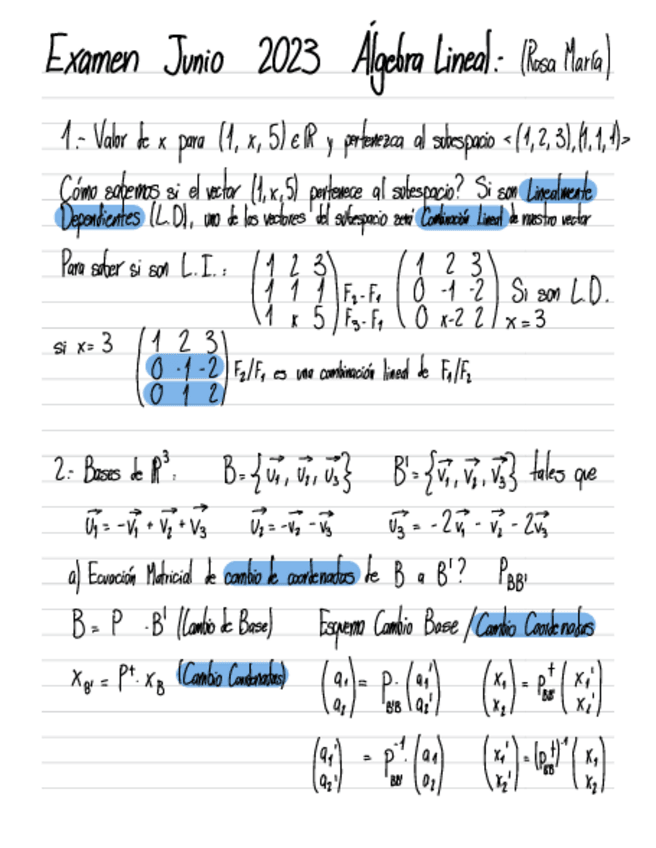 Examen Junio 2023 Álgebra Lineal.- (Rosa María)
1.- Valor de x para (1, x, 5) ∈ ℝ y pertenezca al subespacio <(1,2,3),(1,1,1)>
Cómo sabemos si el vector (1,x,5) pertenece al subespacio? Si son Linealmente
Dependientes (L.D), uno de los vectores del subespacio será Combinación Lineal de nuestro vector
Para saber si son L.I.: (1 2 3 (1 2 3
1 1 1 F₂-F₁ 0 -1 -2 Si son L.D.
1 x 5) F₃-F₁ 0 x-2 2) x=3
si x= 3 (1 2 3
0 -1 -2 F₂/F₁ es una combinación lineal de F₁/F₂
0 1 2)
2.- Bases de ℝ³: B={u₁, u₂, u₃} B'={v₁, v₂, v₃} tales que
u₁=-v₁+v₂+v₃ u₂=-v₂-v₃ u₃=-2v₁-v₂-2v₃
a) Ecuación Matricial de cambio de coordenadas de B a B'? P_BB'
B= P ·B' (Cambio de Base) Esquema Cambio Base /Cambio Coordenadas
X_B' = Pᵗ·X_B (Cambio Coordenadas) (a₁ a₂) = P_B'B·(a₁' a₂') (x₁ x₂) = Pᵗ_BB'(x₁' x₂')
(a₁' a₂') = P⁻¹_BB'·(a₁ a₂) (x₁' x₂') = (Pᵗ_BB')⁻¹·(x₁ x₂)